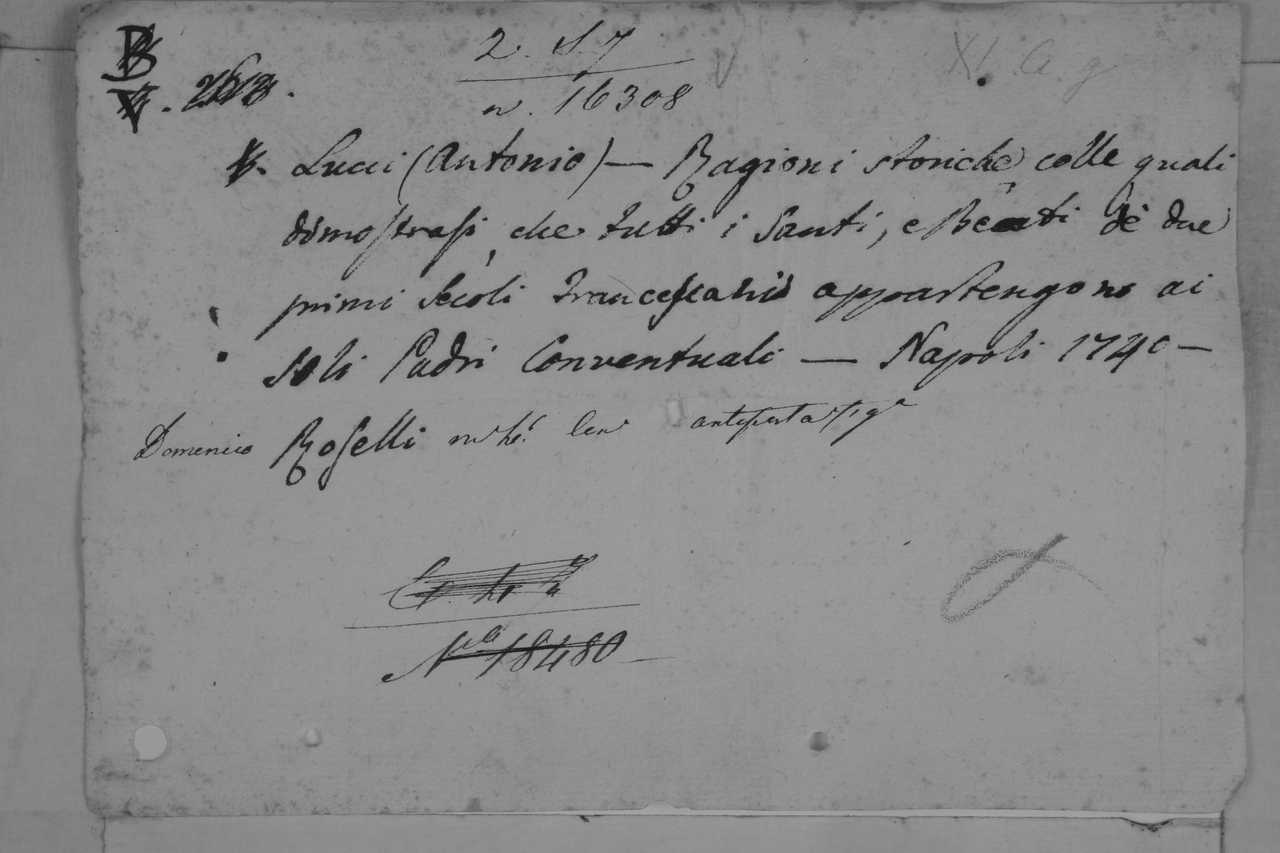 B
V.
2. S. 7
XI. A. g
n. 16308
Lucci (Antonio) — Ragioni storiche colle quali
dimostrasi, che tutti i Santi, e Beati de' due
primi secoli Francescani appartengono ai
soli Padri Conventuali — Napoli 1740 —
Domenico Roselli
N.a 18480